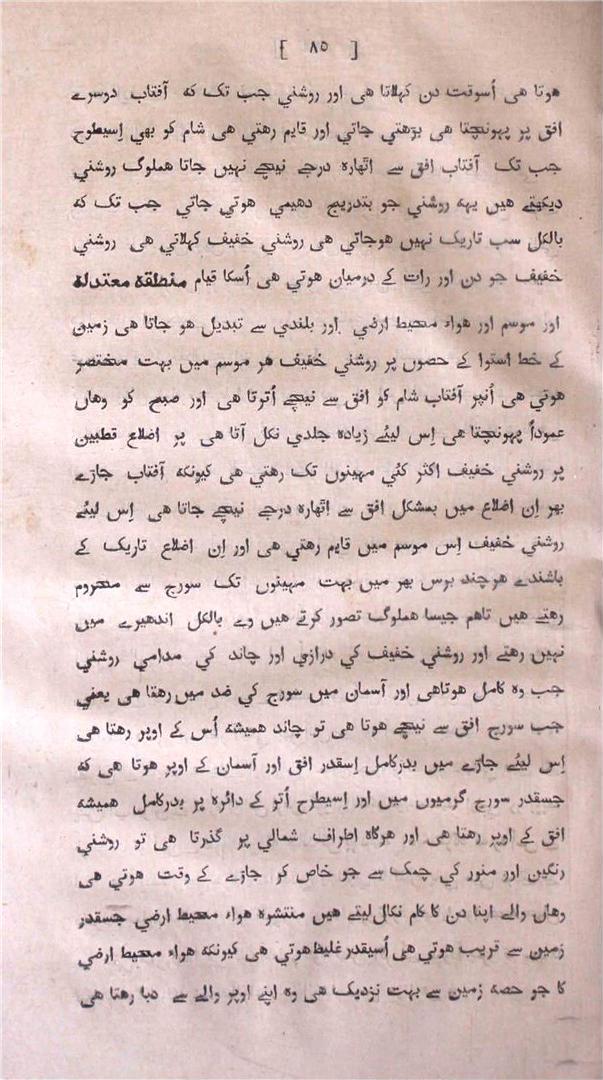 [ ٨٥ ]
هوتا هی اُسوقت دن کہلاتا هی اور روشني جب تک که آفتاب دوسرے
افق پر پہونچتا هی بڑهتي جاتي اور قایم رهتي هی شام کو بهي اِسیطوح
جب تک آفتاب افق سے اٹهارہ درجے نیچے نہیں جاتا هملوگ روشني
دیکہتے هیں یہه روشني جو بتدریج دهیمي هوتي جاتي جب تک که
بالکل سب تاریک نہیں هوجاتي هی روشني خفیف کہلاتي هی روشني
خفیف جو دن اور رات کے درمیان هوتي هی اُسکا قیام منطقهٔ معتدله
اور موسم اور هواء محیط ارضي اور بلندي سے تبدیل هو جاتا هی زمین
کے خط استوا کے حصوں پر روشني خفیف هر موسم میں بہت مختصر
هوتي هی اُنپر آفتاب شام کو افق سے نیچے اُترتا هی اور صبح کو وهاں
عموداً پہونچتا هی اِس لیئے زیادہ جلدي نکل آتا هی پر اضلاع قطبین
پر روشني خفیف اکثر کئي مہینوں تک رهتي هی کیونکه آفتاب جاڑے
بهر اِن اضلاع میں بمشکل افق سے اٹهارہ درجے نیچے جاتا هی اِس لیئے
روشني خفیف اِس موسم میں قایم رهتي هی اور اِن اضلاع تاریک کے
باشندے هرچند برس بهر میں بہت مہینوں تک سورج سے محروم
رهتے هیں تاهم جیسا هملوگ تصور کرتے هیں وے بالکل اندهیرے میں
نہیں رهتے اور روشني خفیف کي درازي اور چاند کي مدامي روشني
جب وہ کامل هوتاهی اور آسمان میں سورج کي ضد میں رهتا هی یعني
جب سورج افق سے نیچے هوتا هی تو چاند همیشه اُس کے اوپر رهتا هی
اِس لیئے جاڑے میں بدرکامل اِسقدر افق اور آسمان کے اوپر هوتا هی که
جسقدر سورج گرمیوں میں اور اِسیطرح اُتر کے دائرہ پر بدرکامل همیشه
افق کے اوپر رهتا هی اور هرگاہ اطراف شمالي پر گذرتا هی تو روشني
رنگین اور منور کي چمک سے جو خاص کر جاڑے کے وقت هوتي هی
وهاں والے اپنا دن کا کام نکال لیتے هیں منتشرہ هواء محیط ارضي جسقدر
زمین سے قریب هوتي هی اُسیقدر غلیظ هوتي هی کیونکه هواء محیط ارضي
کا جو حصه زمین سے بہت نزدیک هی وہ اپنے اوپر والے سے دبا رهتا هی